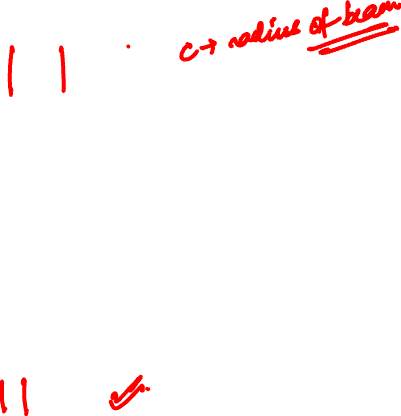 c → radius of beam